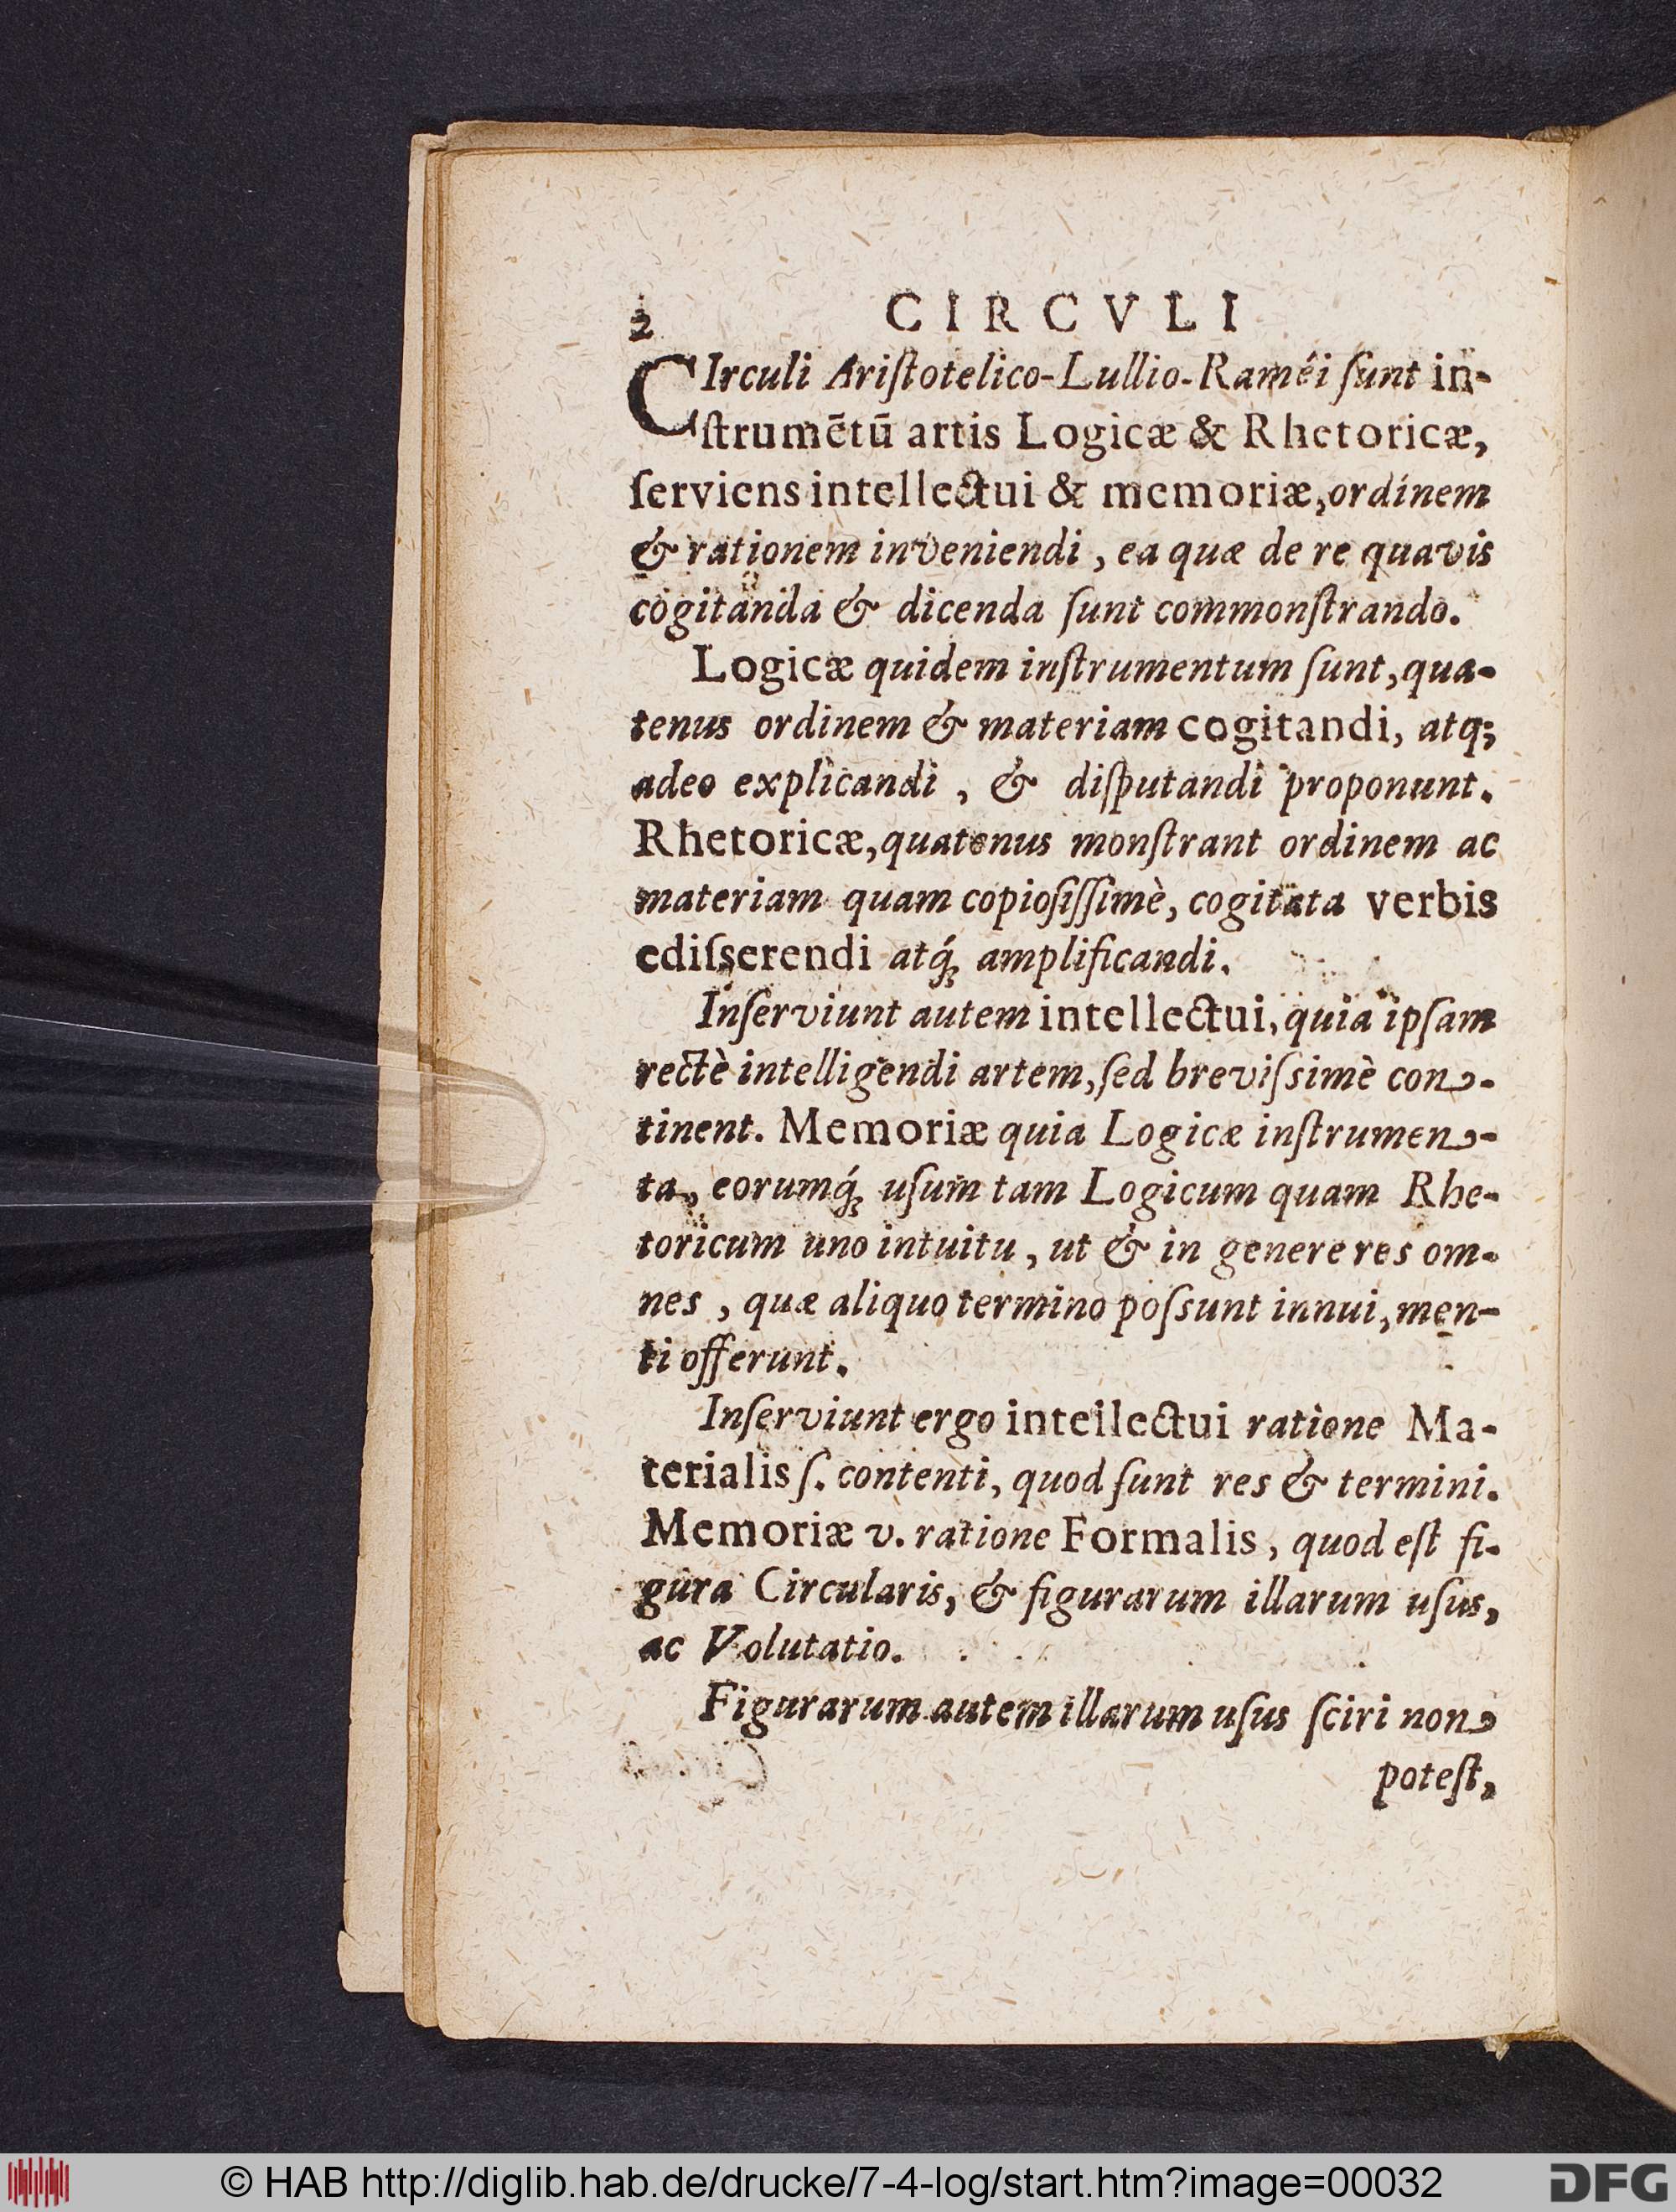 2 CIRCVLI
CIrculi Ariſtotelico-Lullio-Raméi ſunt in-
ſtrumētū artis Logicæ & Rhetoricæ,
ſerviens intellectui & memoriæ, ordinem
& rationem inveniendi, ea quæ de re quavis
cogitanda & dicenda ſunt commonſtrando.
Logicæ quidem inſtrumentum ſunt, qua-
tenus ordinem & materiam cogitandi, atq;
adeo explicandi, & diſputandi proponunt.
Rhetoricæ, quatenus monſtrant ordinem ac
materiam quam copioſiſſimè, cogitata verbis
ediſserendi atq́; amplificandi.
Inſerviunt autem intellectui, quia ipſam
rectè intelligendi artem, ſed breviſsimè con-
tinent. Memoriæ quia Logicæ inſtrumen-
ta, eorumq́; uſum tam Logicum quam Rhe-
toricum uno intuitu, ut & in genere res om-
nes, quæ aliquo termino poſsunt innui, men-
ti offerunt.
Inſerviunt ergo intellectui ratione Ma-
terialis ſ. contenti, quod ſunt res & termini.
Memoriæ v. ratione Formalis, quod eſt fi-
gura Circularis, & figurarum illarum uſus,
ac Volutatio.
Figurarum autem illarum uſus ſciri non
poteſt,
© HAB http://diglib.hab.de/drucke/7-4-log/start.htm?image=00032
DFG